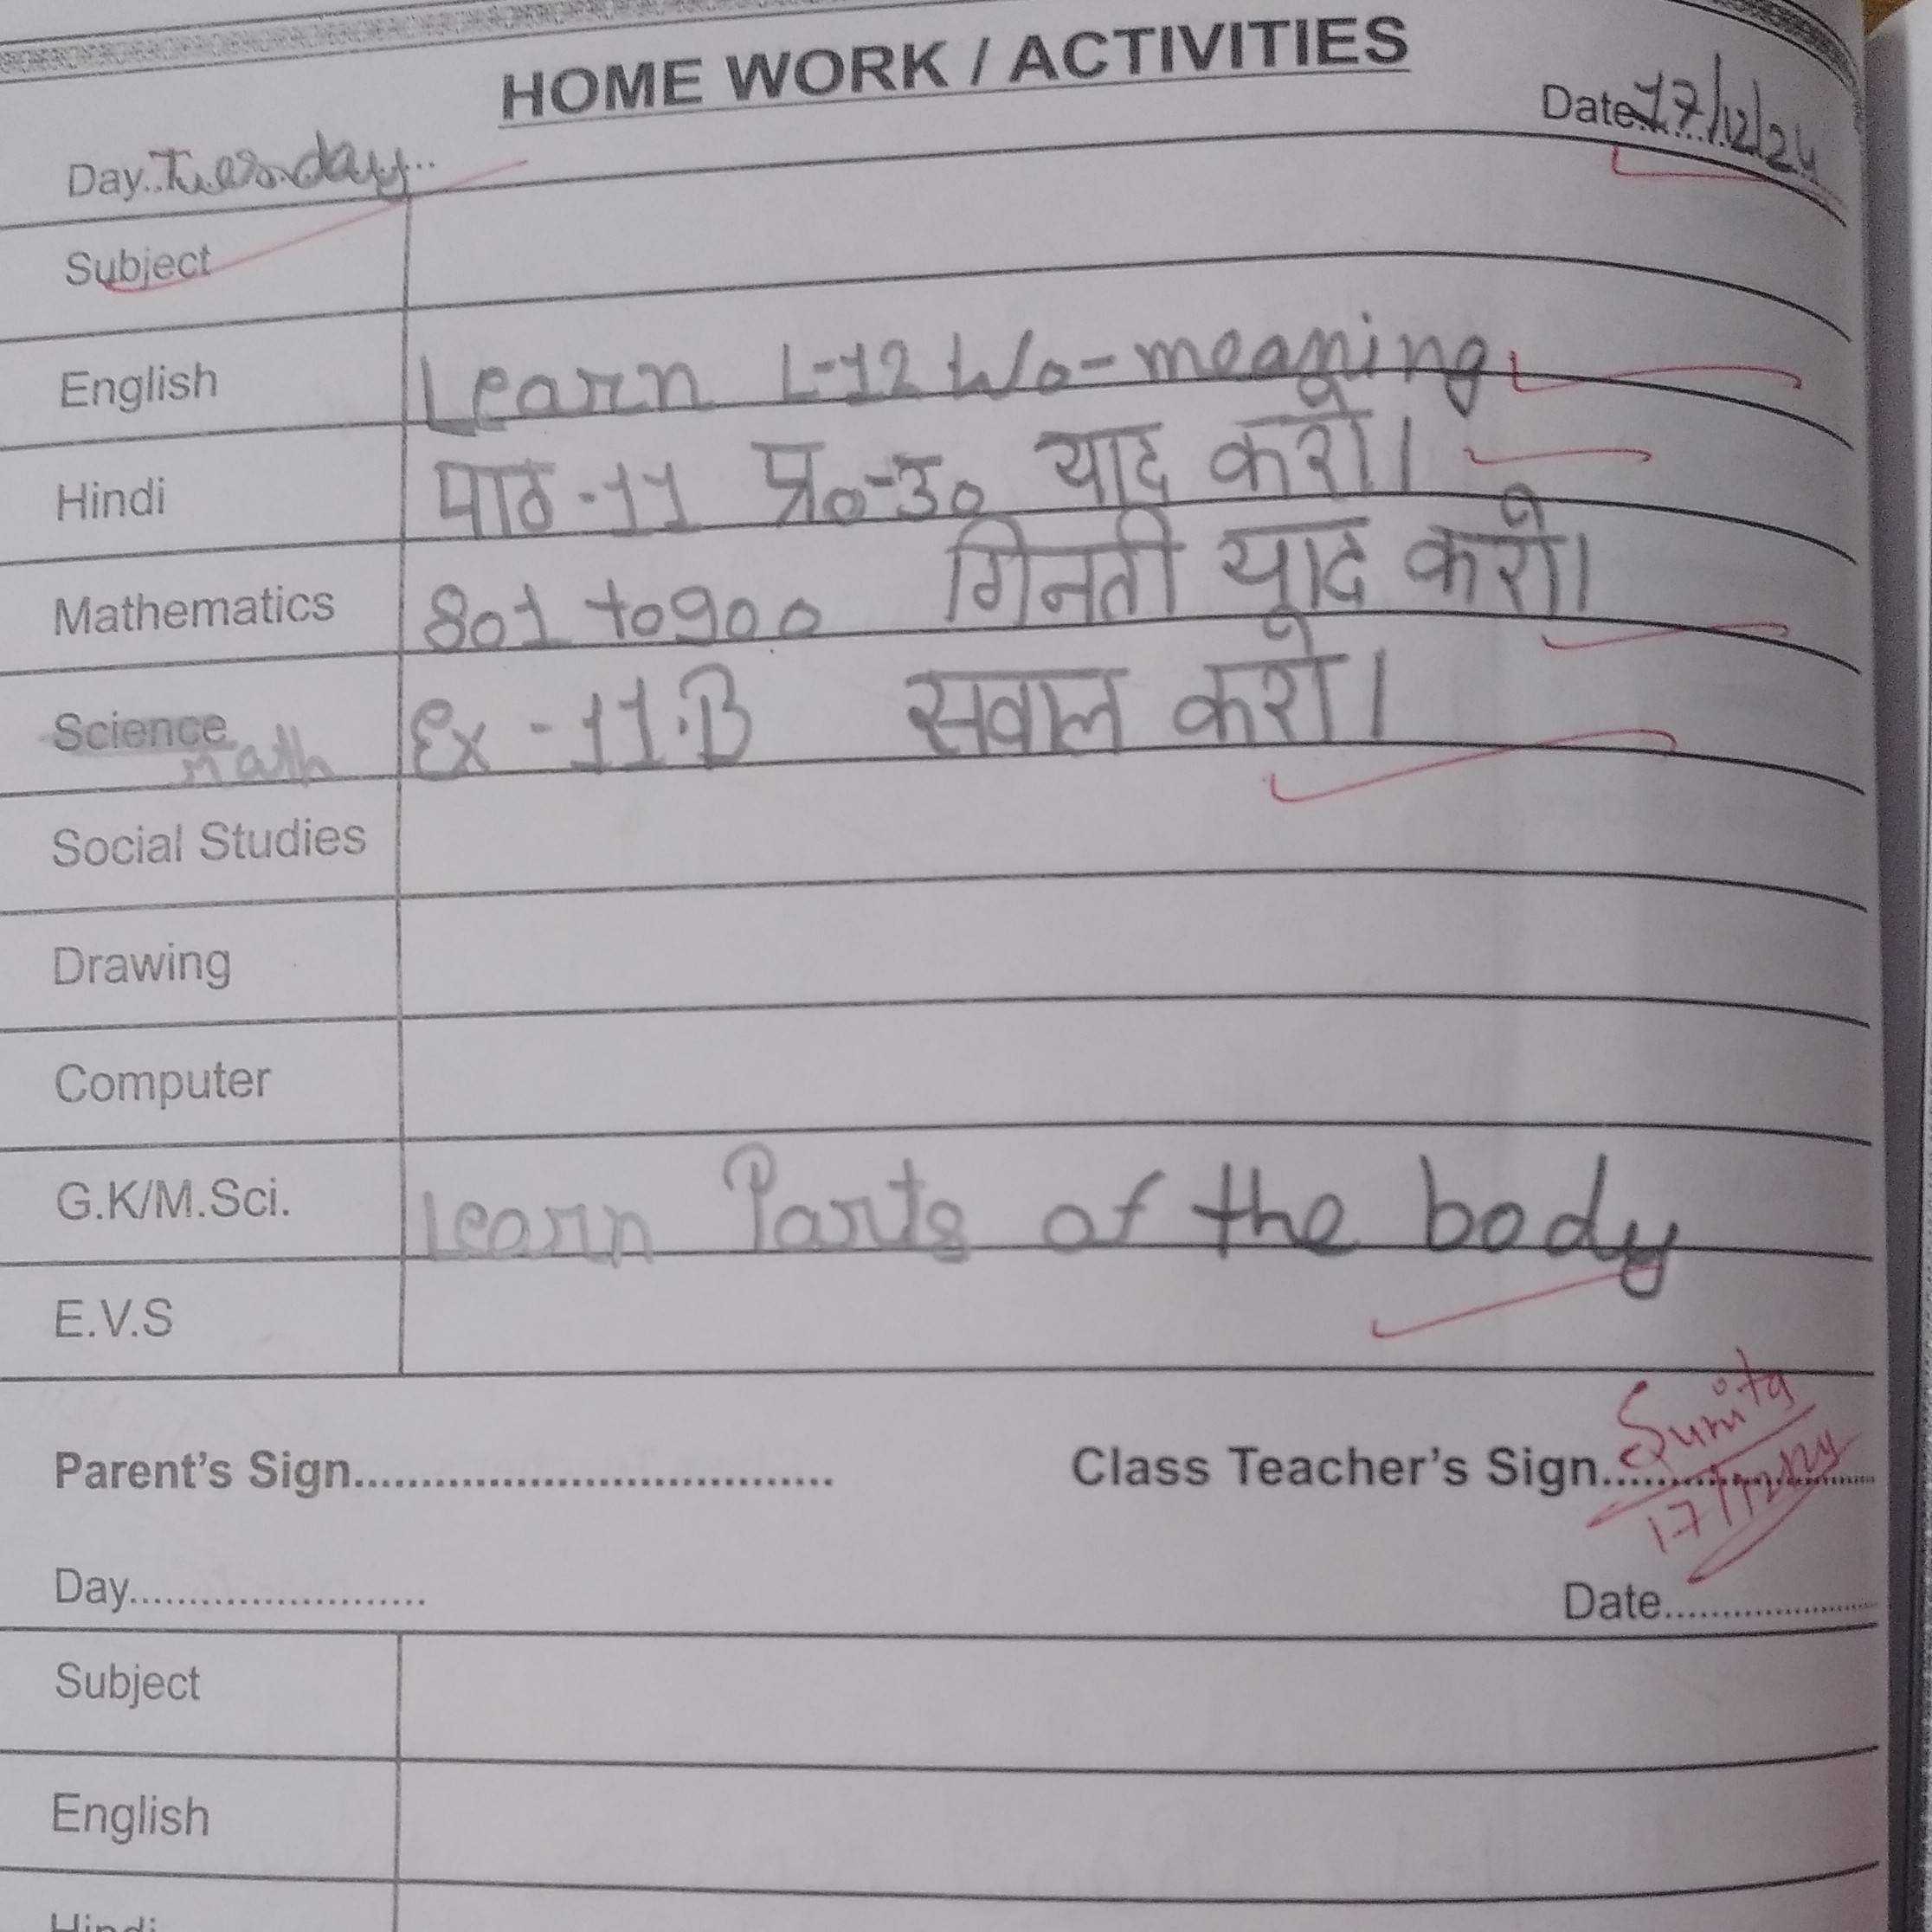 HOME WORK / ACTIVITIES
Day..Tuesday.. Date..17/12/24
Subject
English Learn L-12 W/o-meaning
Hindi पाठ-11 प्र०-उ० याद करो।
Mathematics 801 to 900 गिनती याद करो।
Science Ex-11.B सवाल करो।
math
Social Studies
Drawing
Computer
G.K/M.Sci. Learn Parts of the body
E.V.S
Parent's Sign.................................. Class Teacher's Sign.......... Sunita
17/12/24
Day........................ Date....................
Subject
English
Hindi